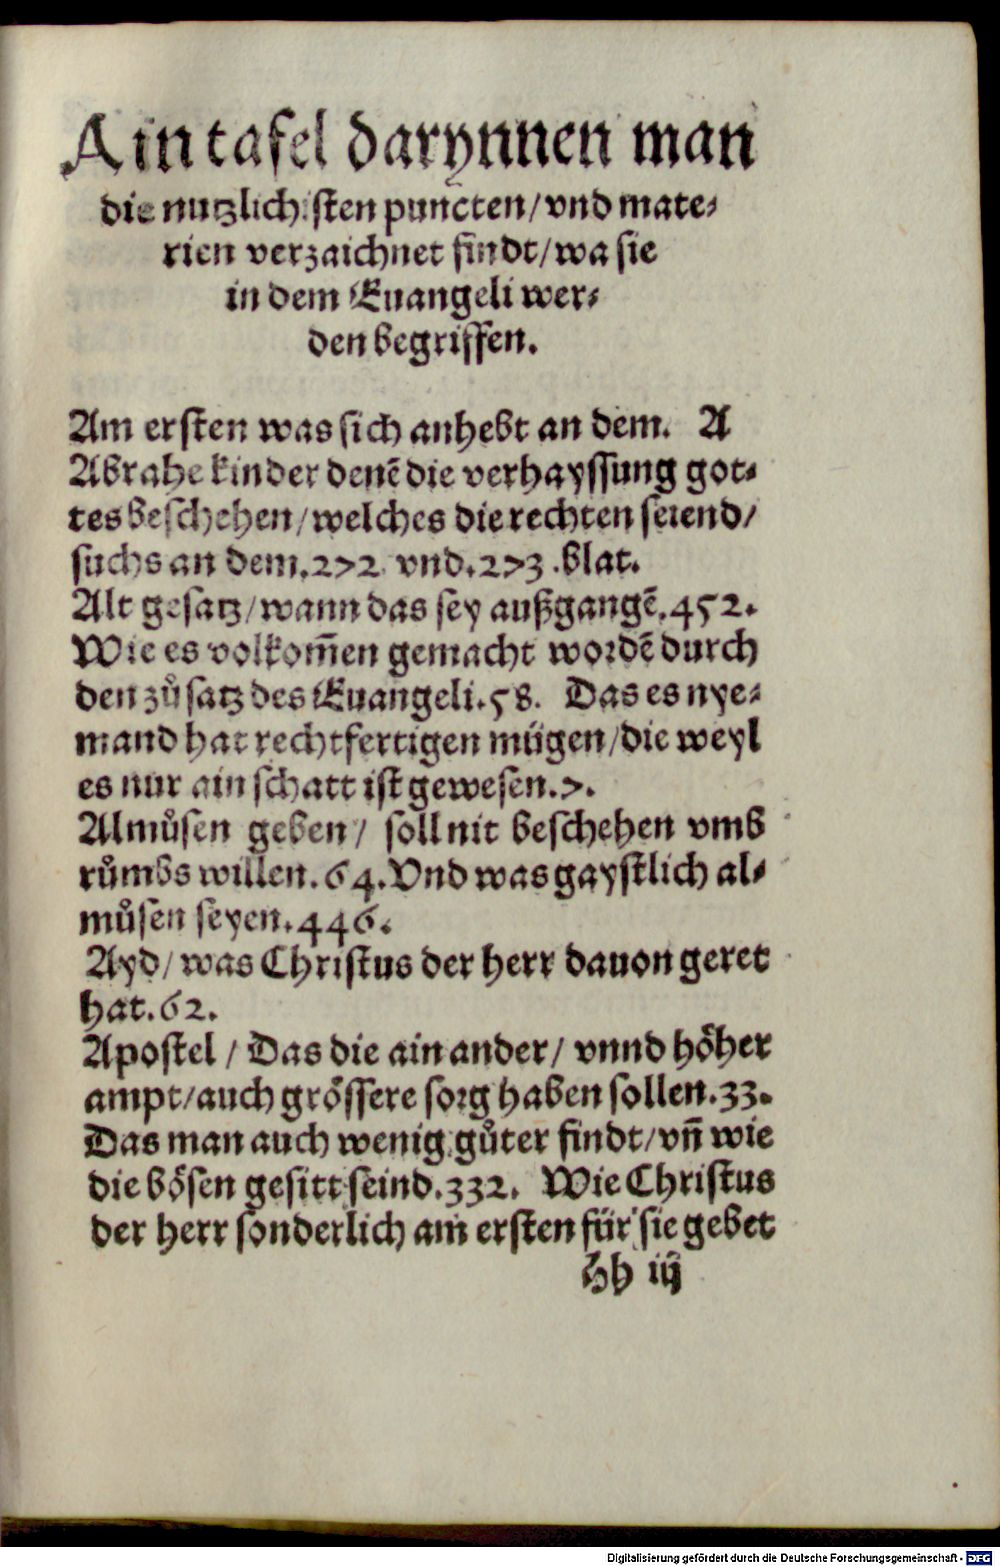 Ain tafel darynnen man
die nutzlichsten puncten/ vnd mate-
rien verzaichnet findt/ wa sie
in dem Euangeli wer-
den begriffen.
Am ersten was sich anhebt an dem. A
Abrahe kinder denẽ die verhayssung got-
tes beschehen/ welches die rechten seiend/
suchs an dem.272 vnd.273.blat.
Alt gesatz/ wann das sey außgangẽ.452.
Wie es volkom̃en gemacht wordẽ durch
den zůsatz des Euangeli.58. Das es nye-
mand hat rechtfertigen mügen/ die weyl
es nur ain schatt ist gewesen.7.
Almůsen geben/ soll nit beschehen vmb
růmbs willen.64. Vnd was gaystlich al-
můsen seyen.446.
Ayd/ was Christus der herr dauon geret
hat.62.
Apostel/ Das die ain ander/ vnnd höher
ampt/ auch grössere sorg haben sollen.33.
Das man auch wenig gůter findt/ vñ wie
die bösen gesitt seind.332. Wie Christus
der herr sonderlich am ersten für sie gebet
Hh iij
Digitalisierung gefördert durch die Deutsche Forschungsgemeinschaft - DFG